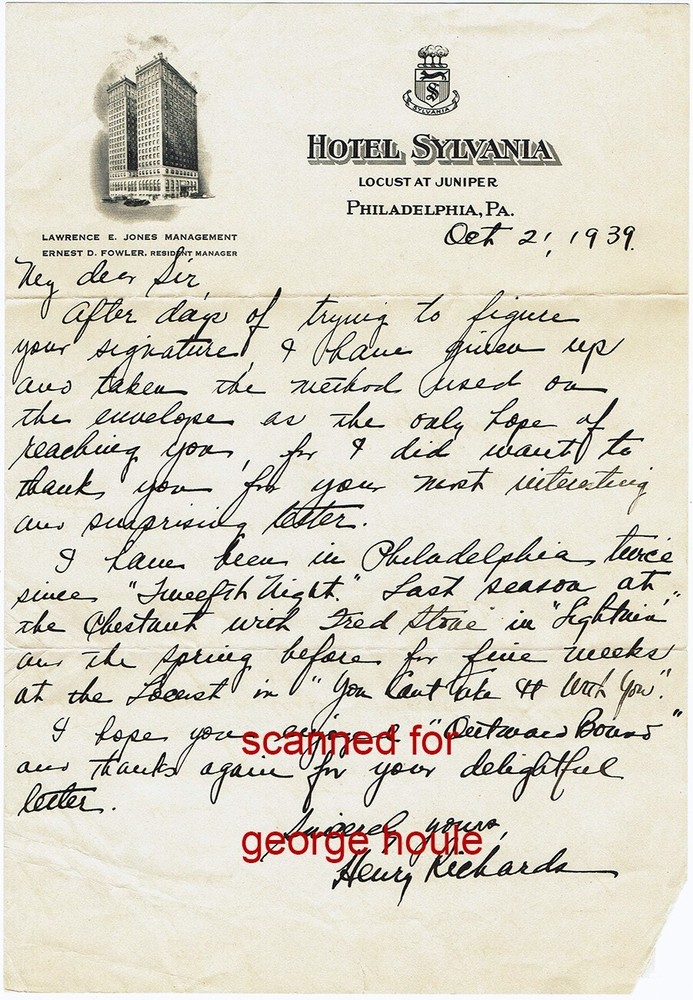 S
SYLVANIA
HOTEL SYLVANIA
LOCUST AT JUNIPER
PHILADELPHIA, PA.
LAWRENCE E. JONES MANAGEMENT
ERNEST D. FOWLER, RESIDENT MANAGER
Oct 21, 1939.
My dear Sir,
After days of trying to figure
your signature, I have given up
and taken the method used on
the envelope as the only hope of
reaching you, for I did want to
thank you for your most interesting
and surprising letter.
I have been in Philadelphia twice
since "Twelfth Night." Last season at
the Chestnut with Fred Stone in "Lightnin"
and the spring before for five weeks
at the Locust in "You Cant take It With You".
I hope you enjoyed "Outward Bound"
and thanks again for your delightful
letter.
Sincerely yours,
Henry Richards
scanned for
george houle